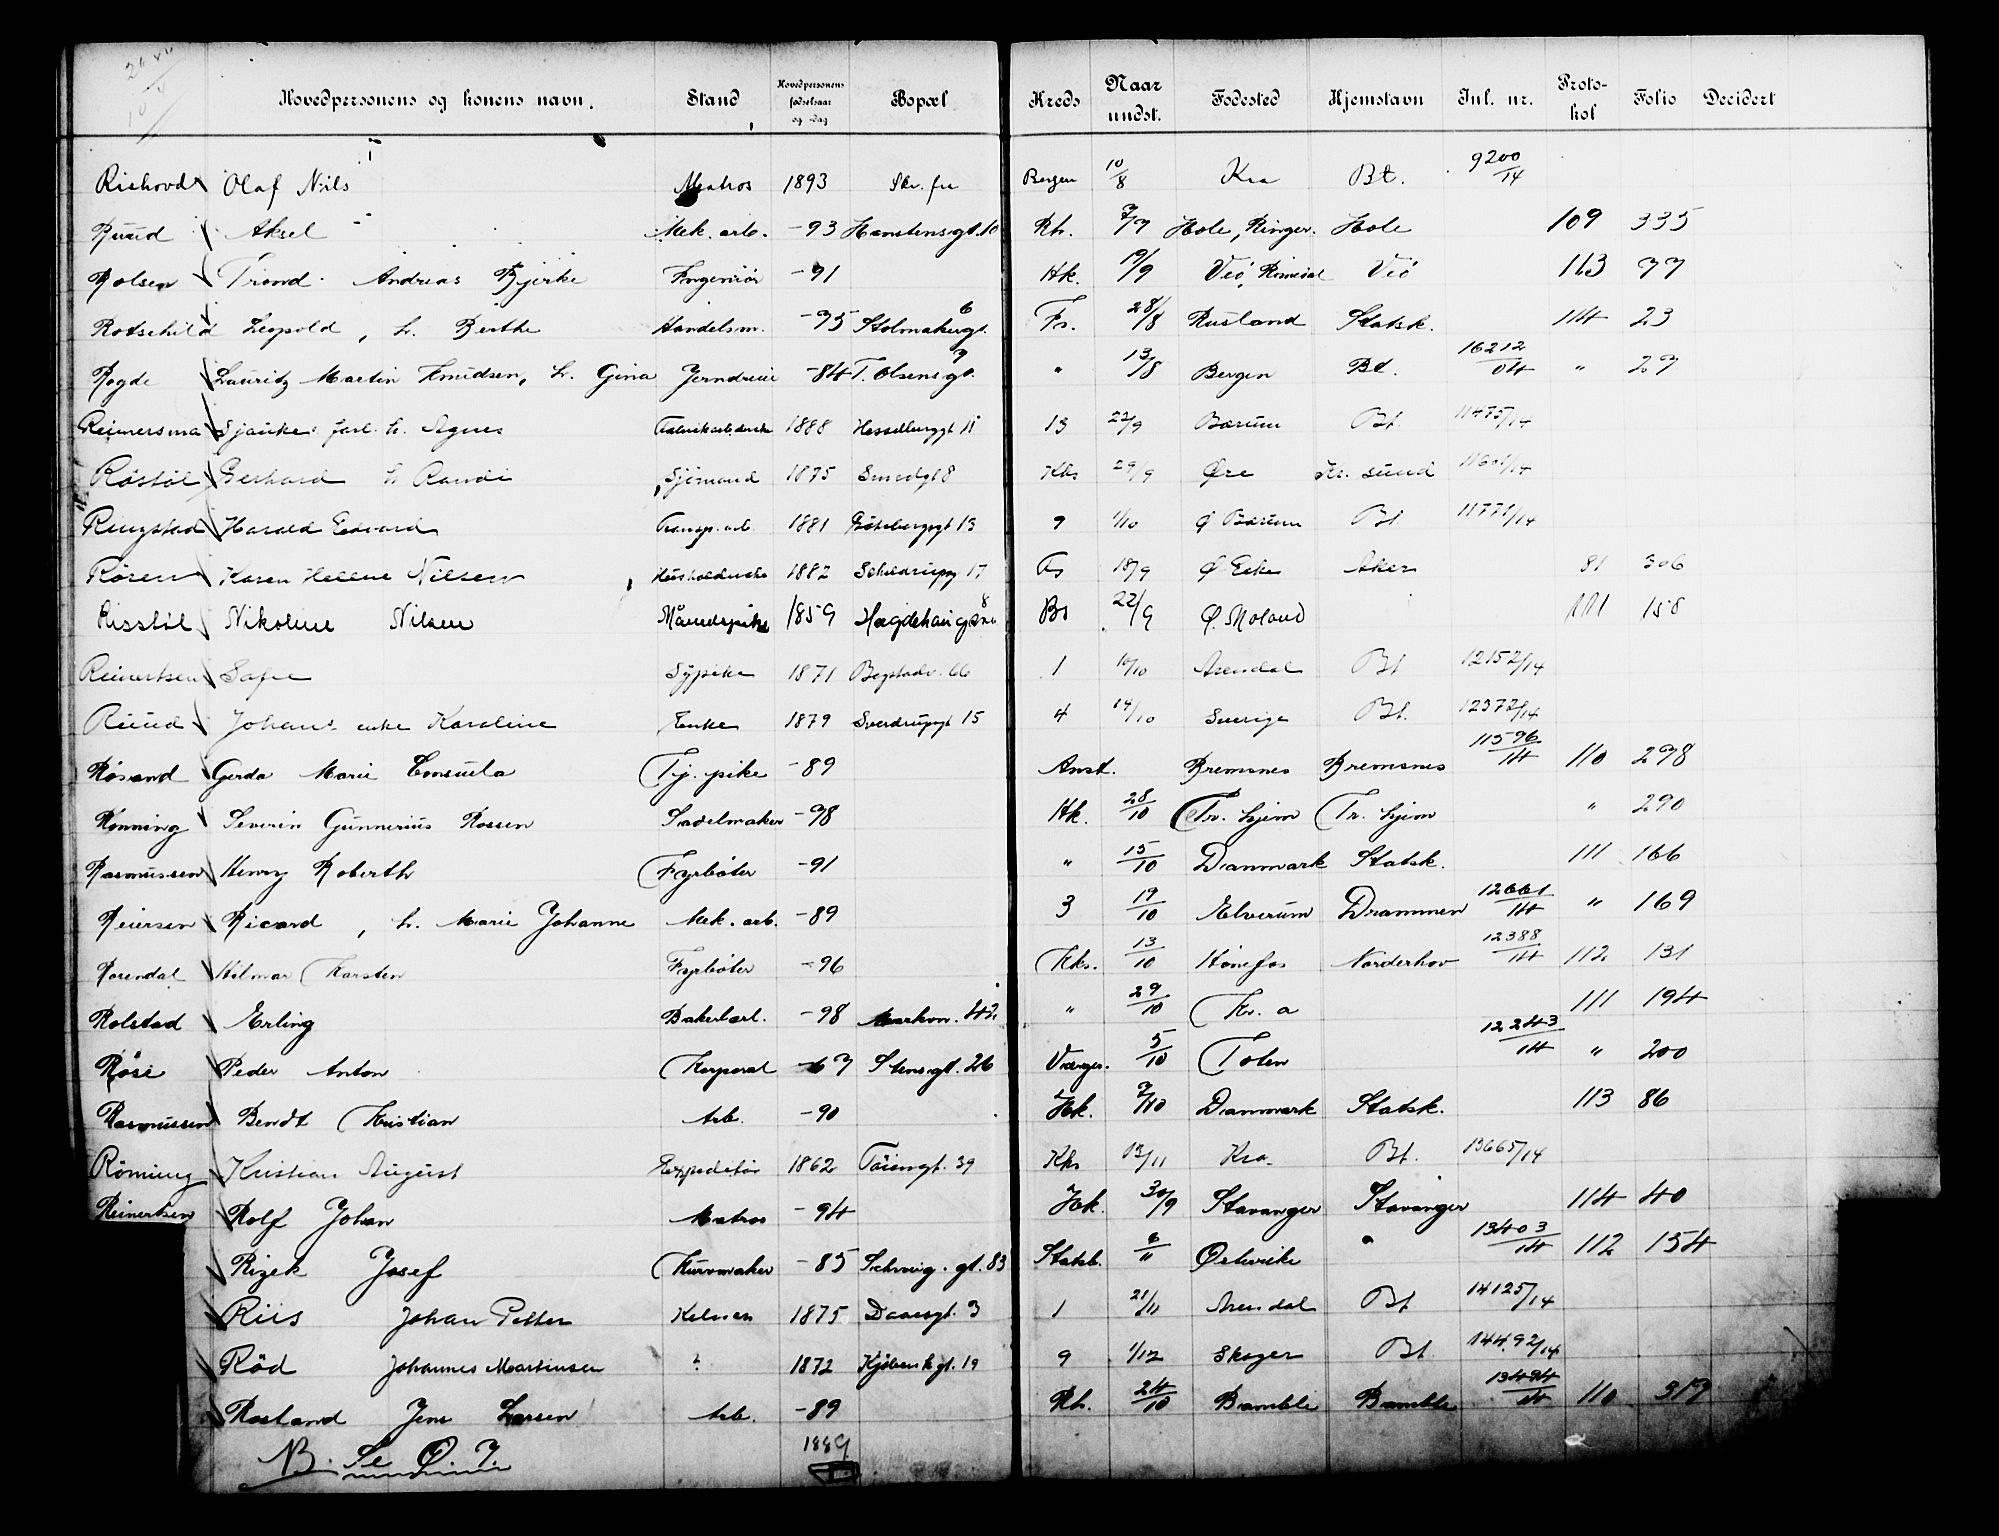 Hovedpersonens og konens navn. Stand Hovedpersonens fødselsaar og -dag Bopæl Kreds Naar undst. Fødested Hjemstavn Inl. nr. Proto-kol Folio Decidert
Rishovd Olaf Nils Matros 1893 Skr. fre Bergen 10/8 Kra Bt. 9200/14
Ruud Aksel Mek. arb. -93 Hanstensgt. 10 Rh. 7/9 Hole, Ringer. Hole 109 335
Rolsen Trond Andreas Bjerke Ingeniør -91 Hk. 19/9 Veö, Romsdal Veö 113 77
Rotschild Leopold, h. Berthe Handelsm. -75 Stolmakergt. 6 Fs. 28/8 Rusland Statsk. 114 23
Rogde Lauritz Martin Knudsen, h. Gina Jerndreier -84 T. Olsensgt. 7 " 13/8 Bergen Bt. 16212/04 " 27
Reimersma Sjauke farl. h. Agnes Fabrikarb.enke 1888 Hesselbergsgt 11 13 22/9 Bærum Bt. 11475/14
Røstøl Gerhard h Randi Sjömand 1875 Smedgt 8 Kbs 29/9 Øre Kr. sund 11601/14
Ringstad Harald Edvard Transp. arb. 1881 Göteborggt 13 9 1/10 Ø Bærum Bt. 11771/14
Røren Karen Hellene Nilsen Husholderske 1882 Schieldrupsg 17 Fs 18/9 Ø Eker Aker 81 306
Risstöl Nikoline Nilsen Månedspike 1859 Hægdehaugsvn 8 Bs 22/9 Ø. Moland 111 158
Reinertsen Sofie Sypike 1871 Bogstadv. 66 1 10/10 Arendal Bt 12152/14
Ruud Johans enke Karoline Enke 1879 Sverdrupsgt 15 4 14/10 Sverige Bt. 12372/14
Røsand Gerda Marie Consuela Tj. pike -89 Anst. Bremsnes Bremsnes 11596/14 110 298
Rønning Severin Gunnerius Rossen Sadelmaker -98 Hk. 28/10 Tr. hjem Tr. hjem " 290
Rasmussen Henry Roberth Fyrbøter -91 " 15/10 Danmark Statsk. 111 166
Reiersen Ricard, h. Marie Johanne Mek. arb. -89 3 19/10 Elverum Drammen 12661/14 " 169
Rosendal Hilmar Karsten Fyrbøter -96 Kks. 13/10 Hønefos Norderhov 12388/14 112 131
Rolstad Erling Bakerlærl. -98 Markvn. 42 " 29/10 Kr. a 111 194
Røse Peder Anton Korporal -67 Stensgt. 26 Værger. 5/10 Toten 12243/14 " 200
Rasmussen Bendt Kristian Arb. -90 Hk. 7/10 Danmark Statsk. 113 86
Röning Kristian August Expeditør 1862 Töiengt. 39 Kks 13/11 Kra. Bt. 13665/14
Reinertsen Rolf Johan Matros -94 Hk. 30/9 Stavanger Stavanger 114 40
Rizek Josef Kurvmaker -85 Schweig. gt. 83 Statsb. 6/11 Østerrike " 13403/14 112 154
Riis Johan Petter Kelner 1875 Daaesgt. 3 1 21/11 Arendal Bt 14125/14
Röd Johannes Martinsen ? 1872 Kjøbenh gt. 19 9 1/12 Skoger Bt 14492/14
Rosland Jens Larsen Arb. -89 Rh. 24/10 Bamble Bamble 13494/14 110 317
NB. Se Ø. J. 1889